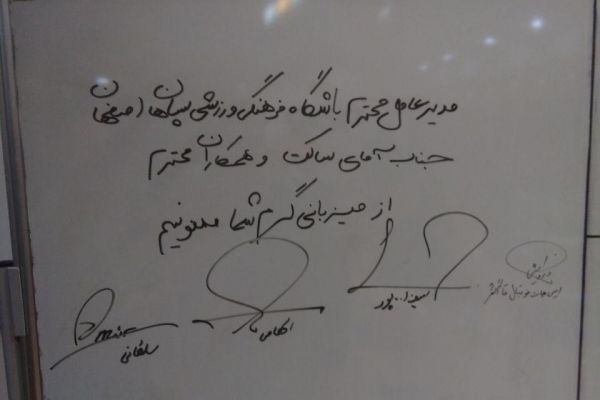 مدیر عامل محترم باشگاه فرهنگی ورزشی سپاهان اصفهان
جناب آقای ساکت و همکاران محترم
از میزبانی گرم شما ممنونیم
سلطانی